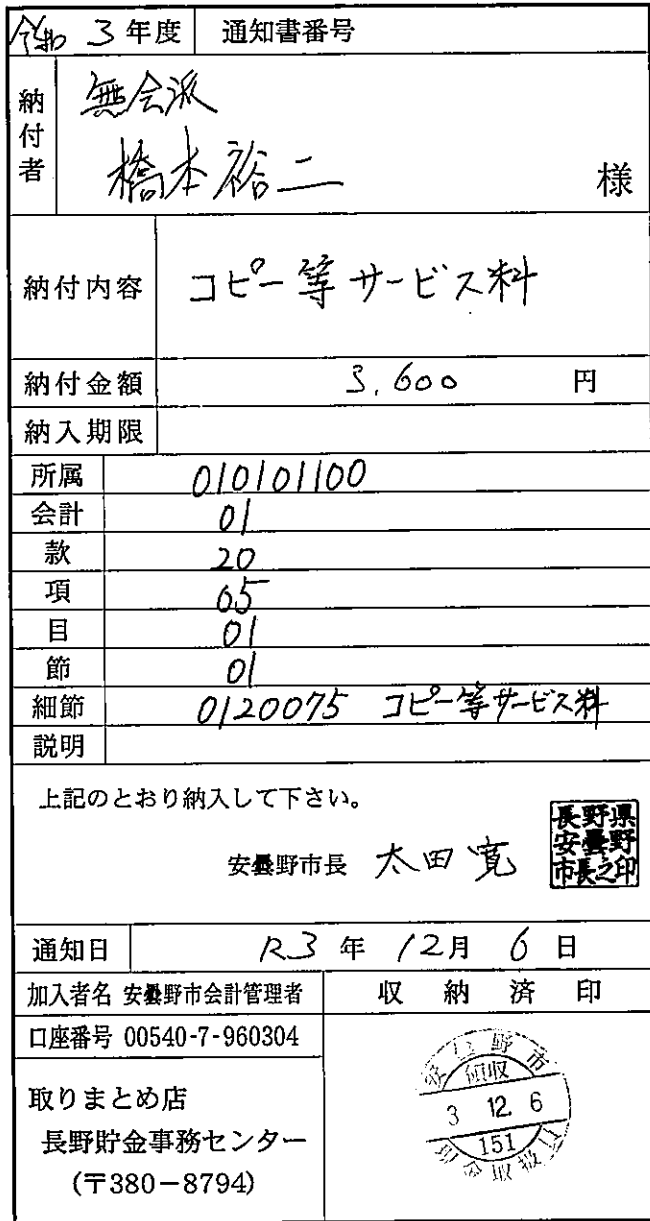 令和 3年度 通知書番号
納付者 無会派
橋本裕二 様
納付内容 コピー等サービス料
納付金額 3,600 円
納入期限
所属 010101100
会計 01
款 20
項 65
目 01
節 01
細節 0120075 コピー等サービス料
説明
上記のとおり納入して下さい。
安曇野市長 太田寛
長野県
安曇野
市長之印
通知日 R3 年 12月 6 日
加入者名 安曇野市会計管理者 収納済印
口座番号 00540-7-960304
取りまとめ店
長野貯金事務センター
(〒380-8794)
安曇野市
領収
3 12 6
151